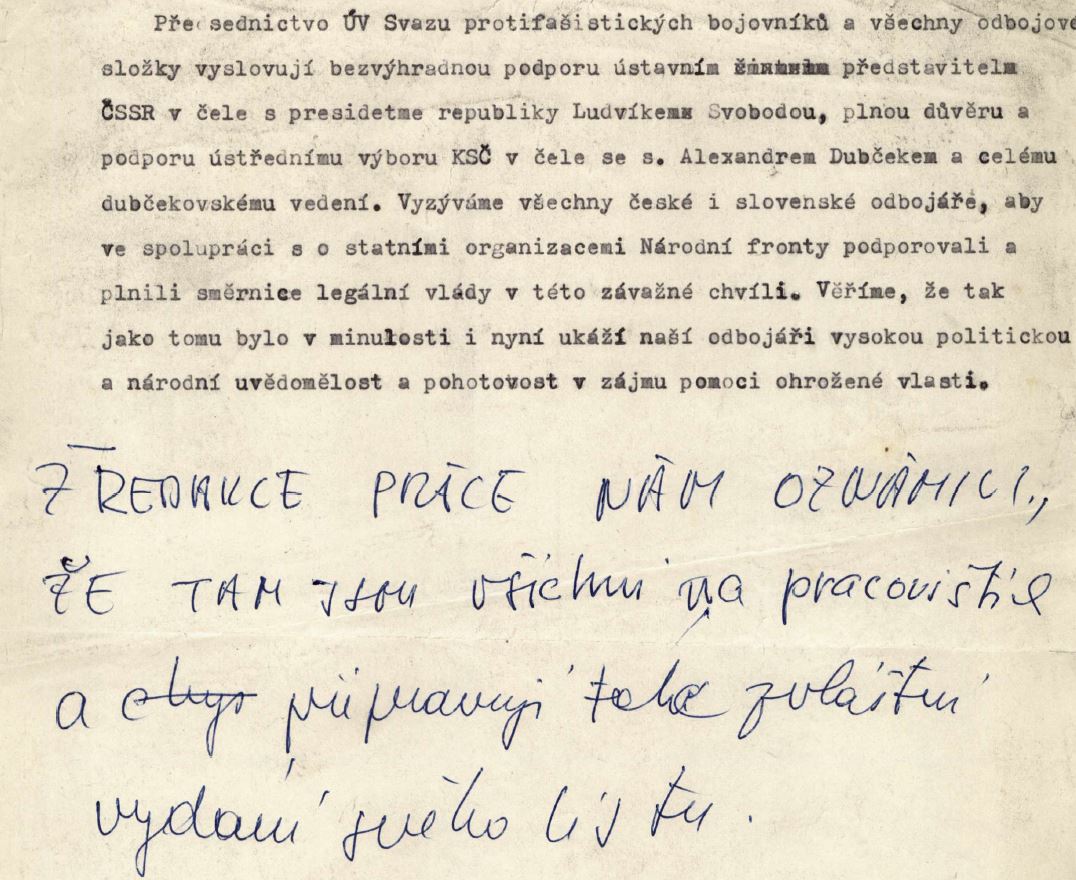 Předsednictvo ÚV Svazu protifašistických bojovníků a všechny odbojové
složky vyslovují bezvýhradnou podporu ústavním představitelm
ČSSR v čele s presidetme republiky Ludvíkem Svobodou, plnou důvěru a
podporu ústřednímu výboru KSČ v čele se s. Alexandrem Dubčekem a celému
dubčekovskému vedení. Vyzýváme všechny české i slovenské odbojáře, aby
ve spolupráci s o statními organizacemi Národní fronty podporovali a
plnili směrnice legální vlády v této závažné chvíli. Věříme, že tak
jako tomu bylo v minulosti i nyní ukáží naší odbojáři vysokou politickou
a národní uvědomělost a pohotovost v zájmu pomoci ohrožené vlasti.
Z REDAKCE PRÁCE NÁM OZNÁMILI,
ŽE TAM JSOU všichni na pracovišti
a připravují také zvláštní
vydání svého listu.